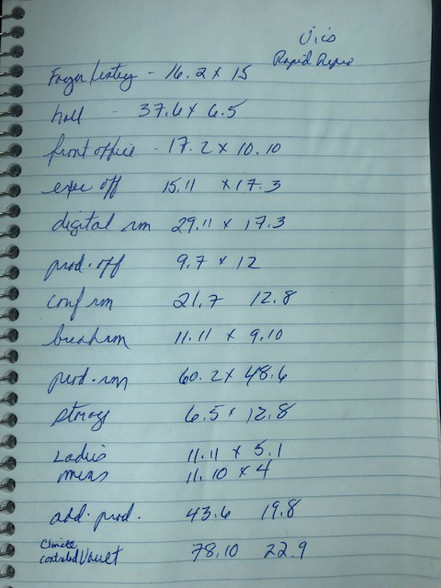 Vics
Rapid Repro
Foyer/entry - 16.2 x 15
hall - 37.6 x 6.5
front office - 17.2 x 10.10
exec off 15.11 x 17.3
digital rm 29.11 x 17.3
prod. off 9.7 x 12
conf rm 21.7 12.8
breakrm 11.11 x 9.10
prod. rm 60.2 x 48.6
storage 6.5 x 12.8
Ladies 11.11 x 5.1
mens 11.10 x 4
add. prod. 43.6 19.8
Climate
controlled Vault 78.10 22.9